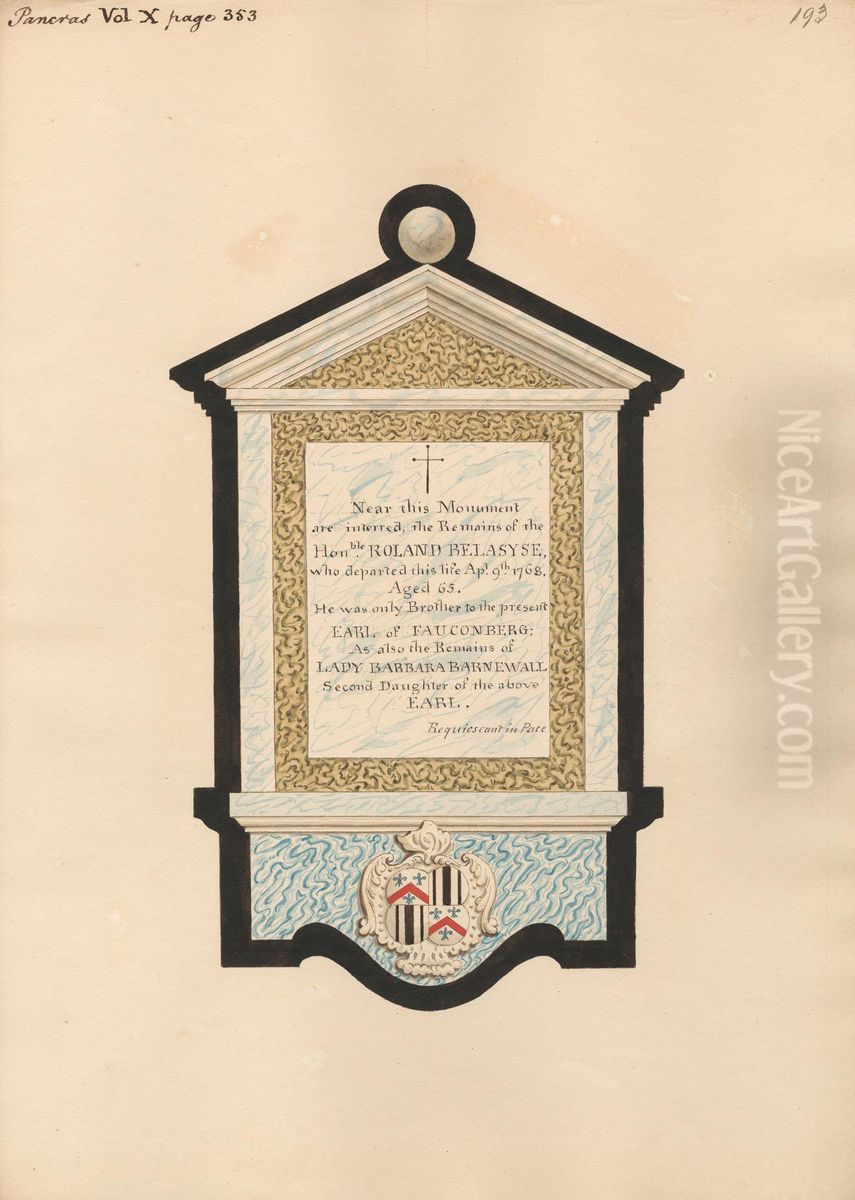 Pancras Vol X page 353
193
Near this Monument
are interred, the Remains of the
Honble. ROLAND BELASYSE,
who departed this life Apl. 9th 1768,
Aged 65.
He was only Brother to the present
EARL of FAUCONBERG;
As also the Remains of
LADY BARBARA BARNEWALL
Second Daughter of the above
EARL.
Requiescant in Pace
NiceArtGallery.com